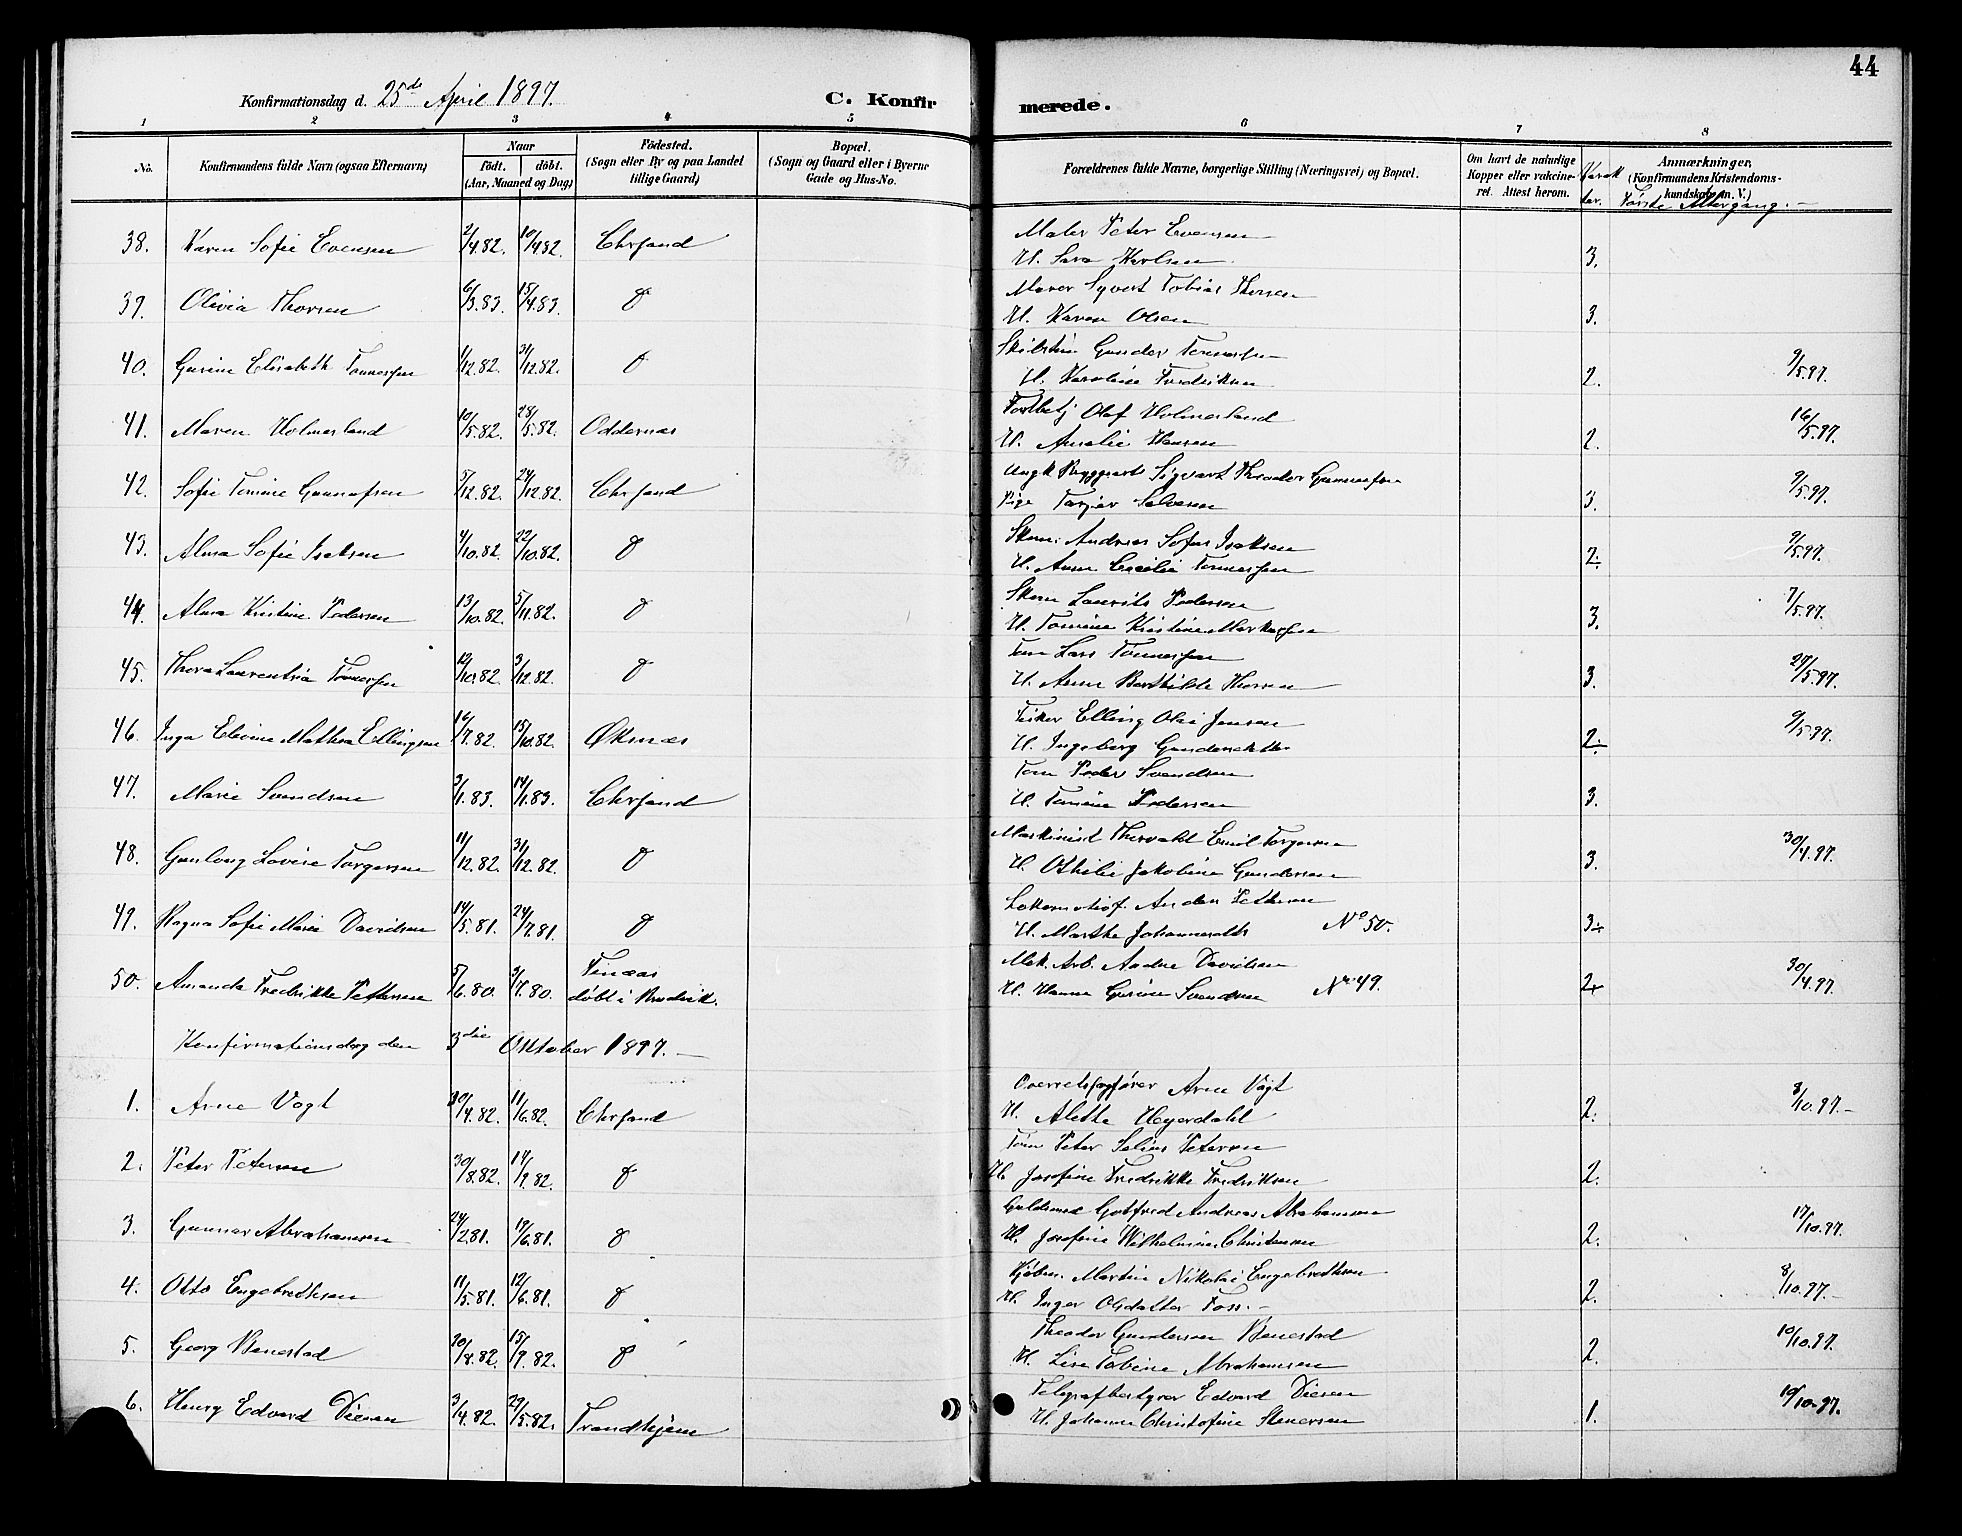 44
Konfirmationsdag d. 25de April 1897.
C. Konfirmerede.
1 2 3 4 5 6 7 8
No.
Konfirmandens fulde Navn (ogsaa Efternavn)
Naar
födt. döbt.
(Aar, Maaned og Dag)
Födested.
(Sogn eller By og paa Landet
tillige Gaard)
Bopæl.
(Sogn og Gaard eller i Byerne
Gade og Hus-No.
Forældrenes fulde Navne, borgerlige Stilling (Næringsvei) og Bopæl.
Om havt de naturlige
Kopper eller vakcine-
ret. Attest herom.
Karak
ter.
Anmærkninger,
(Konfirmandens Kristendoms-
kundskab m. V.)
Første Altergang. —
38. Karen Sofie Evensen 2/4.82. 10/4.82. Chrsand Maler Peter Evensen
H. Sara Karlsen 3.
39. Olivia Thorsen 6/3.83. 15/4.83. d Murer Syvert Tobias Thorsen
H. Karen Olsen 3.
40. Gurine Elisabeth Tønnessen 1/12.82. 31/12.82. d Gunder Tønnessen
H. Karoline Fredriksen 2. 9/5.97.
41. Maren Holmesland 10/5.82. 28/5.82. Oddernæs Olaf Holmesland
H. Amalie Hansen 2. 16/5.97.
42. Sofie Tomine Gunnufsen 5/12.82. 24/12.82. Chrsand Ungk Sigvart Theodor Gunnufsen
Pige Torjer Salvesen 3. 9/5.97.
43. Alma Sofie Isaksen 4/10.82. 22/10.82. d Skom. Andreas Sofus Isaksen
H. Anne Cecilie Tønnessen 2. 9/5.97.
44. Alma Kristine Pedersen 13/10.82. 5/11.82. d Skom Laurits Pedersen
H. Tomine Kristine Markussen 3. 7/5.97.
45. Thora Laurentia Tønnessen 12/10.82. 3/12.82. d Tøm Lars Tønnessen
H. Anne Berthilde Thorsen 3. 27/5.97.
46. Inga Elevine Mathea Ellingsen 16/7.82. 15/10.82. Øksnæs Fisker Elling Olai Jensen
H. Ingeborg Gundersdatter 2. 9/5.97.
47. Marie Svendsen 3/1.83. 14/1.83. Chrsand Tøm Peder Svendsen
H. Tomine Pedersen 3.
48. Gunlaug Lovise Torgersen 11/12.82. 31/12.82. d Maskinist Thorvald Emil Torgersen
H. Othilie Jakobine Gundersen 3. 30/4.97.
49. Ragna Sofie Marie Davidsen 14/5.81. 24/7.81. d Lokomotivf. Anders Pettersen
H. Marthe Johannesdtr No 50. 3.
50. Amanda Fredrikke Pettersen 5/6.80. 3/7.80. døbt i Mek. Arb. Andre Davidsen
H. Hanne Gurine Svendsen No 49. 2. 30/4.97.
Konfirmationsdag den 3die Oktober 1897. —
1. Arne Vogt 20/4.82. 11/6.82. Chrsand Overretssagfører Arne Vogt
H. Alethe Heyerdahl 2. 8/10.97.—
2. Peter Petersen 30/8.82. 17/9.82. d Tøm Peter Selius Petersen
H. Josefine Fredrikke Fredriksen 2.
3. Gunnar Abrahamsen 24/2.81. 19/6.81. d Guldsmed Gotfred Andreas Abrahamsen
H. Josefine Wilhelmine Christensen 2. 17/10.97.
4. Otto Engebrethsen 11/5.81. 12/6.81. d Kjøbm. Martin Nikolai Engebrethsen
H. Inger Olsdatter Foss. — 2. 8/10.97.—
5. Georg Benestad 20/8.82. 15/9.82. d Theodor Gundersen Benestad
H. Lise Tobine Abrahamsen 2. 10/10.97.
6. Henry Edvard Diesen 3/4.82. 29/5.82. Trondhjem Telegrafbestyrer Edvard Diesen
H. Johanne Christofine Stenersen 1. 10/10.97.